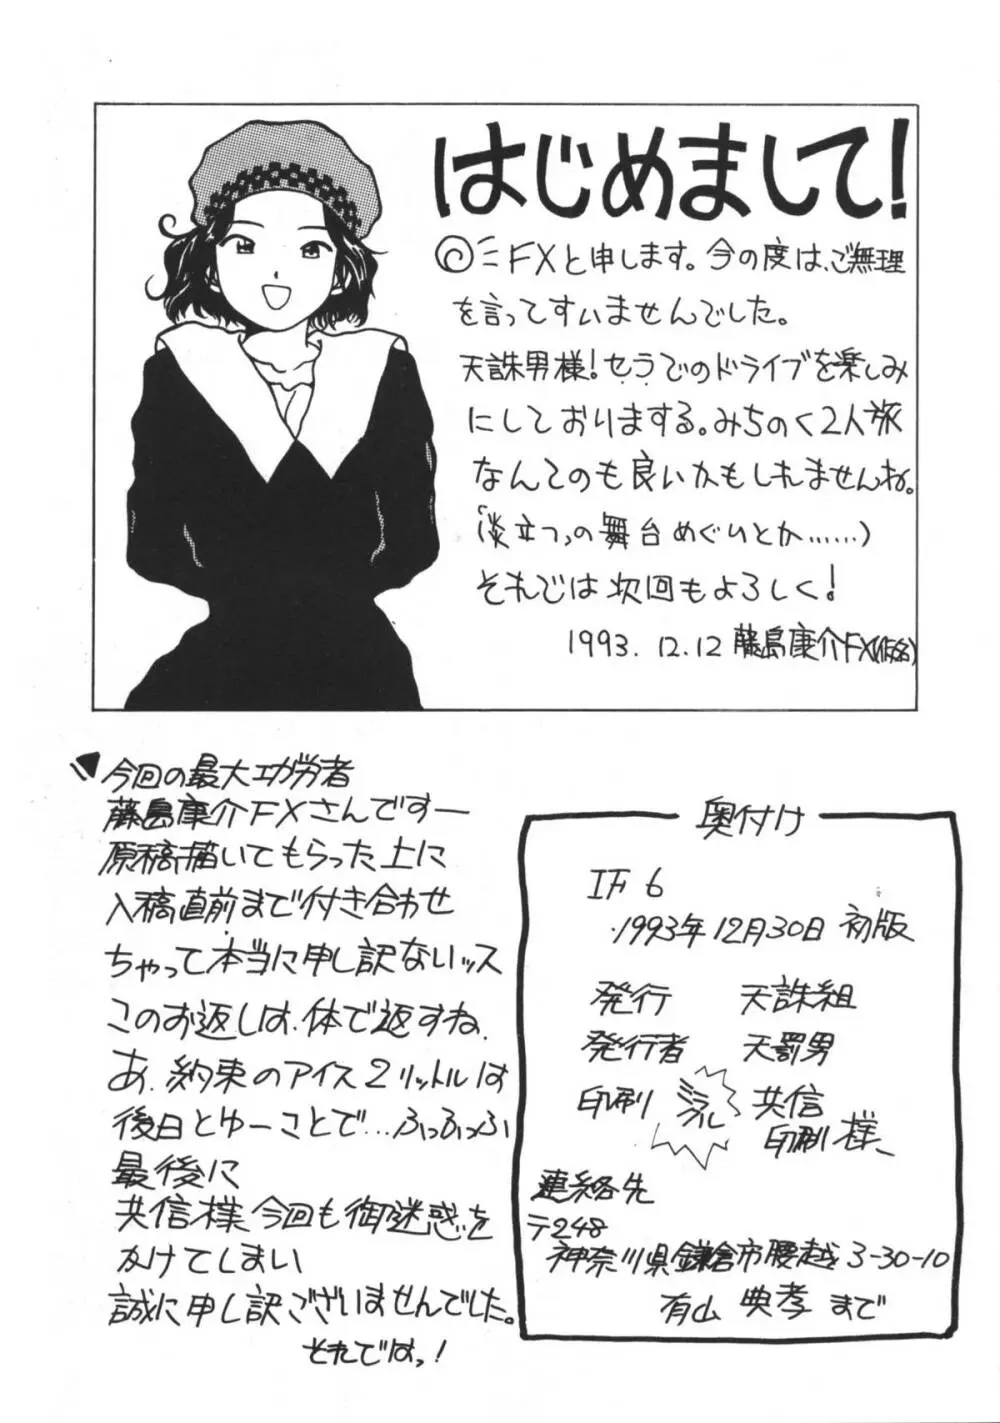 はじめまして!
FXと申します。今の度は、ご無理
を言ってすいませんでした。
天誅男様!セラでのドライブを楽しみ
にしておりまする。みちのく2人旅
なんてのも良いかもしれませんね。
(炎立つ、の舞台めぐりとか……)
それでは次回もよろしく!
1993.12.12 藤島康介FX(仮名)
今回の最大功労者
藤島康介FXさんですー
原稿描いてもらった上に
入稿直前まで付き合わせ
ちゃって本当に申し訳ないッス
このお返しは、体で返すね、
あ、約束のアイス2リットルは
後日とゆーことで…ふっふっふ
最後に
共信様、今回も御迷惑を
かけてしまい
誠に申し訳ございませんでした。
それではっ!
奥付け
IF 6
1993年12月30日 初版
発行 天誅組
発行者 天罰男
印刷 ミラクル 共信
印刷 様、
連絡先
〒248
神奈川県鎌倉市腰越3-30-10
有山 典孝 まで